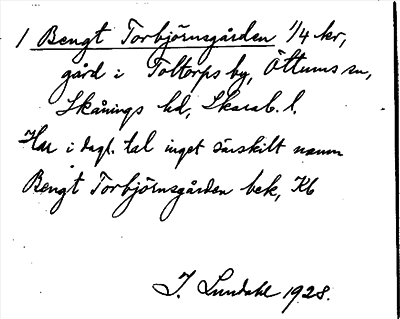 1 Bengt Torbjörnsgården 1/4 kr,
gård i Toltorps by, Öttums sn,
Skånings hd, Skarab. l.
Har i dagl. tal inget särskilt namn
Bengt Torbjörnsgården bek, Kb
I. Lundahl 1928.